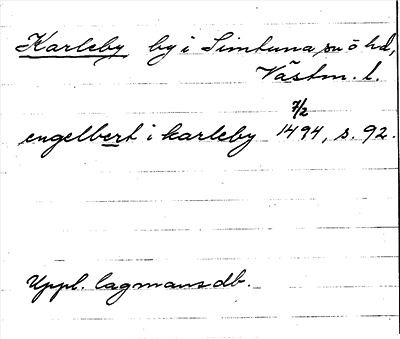 Karleby by i Simtuna sn o hd,
Västm. l.
engelbert i karleby 7/2 1494, s. 92.
Uppl. lagmansdb.